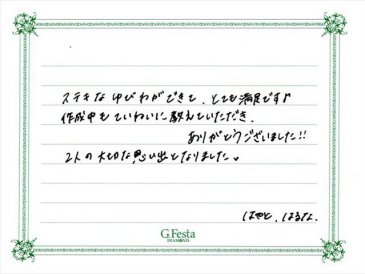 ステキなゆびわができて、とても満足です♪
作成中もていねいに教えていただき、
ありがとうございました!!
2人の大切な思い出となりました。
はやと、はるな
G.Festa
DIAMOND